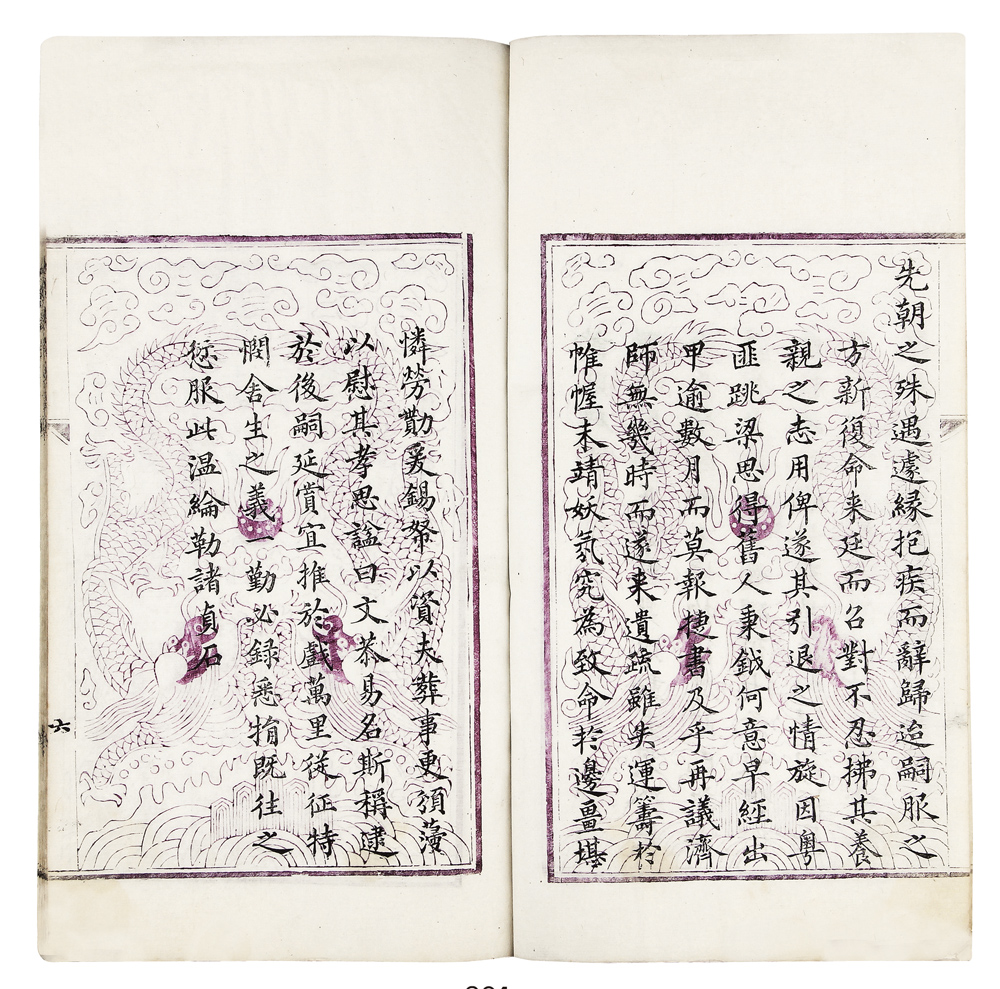 先朝之殊遇遽緣抱疾而辭歸迨嗣服之
方新復命来廷而召對不忍拂其養
親之志用俾遂其引退之情旋因粵
匪跳梁思得舊人秉鉞何意早經出
甲逾數月而莫報捷書及乎再議濟
師無幾時而遂来遺疏雖失運籌於
帷幄未靖妖氛究為致命於邊疆堪
憐勞勩爰錫帑以資夫葬事更頒藻
以慰其孝思諡曰文恭易名斯稱逮
於後嗣延賞宜推於戲萬里從征特
憫舍生之義一勤必録悉捐既往之
愆服此温綸勒諸貞石
六